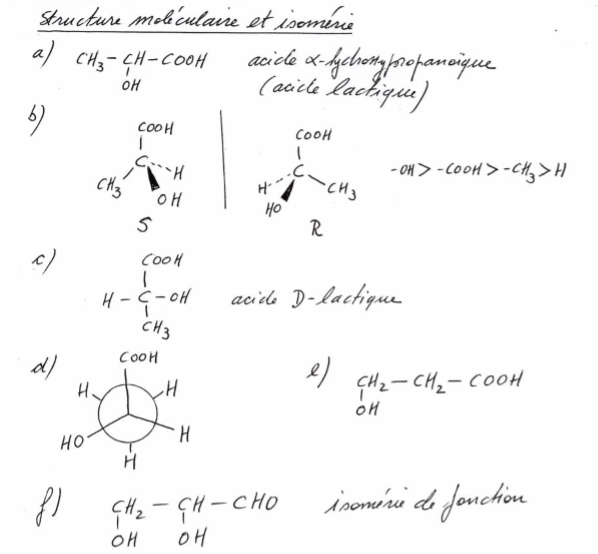 Structure moléculaire et isomérie
a) CH₃ – CH – COOH acide α-hydroxypropanoïque
OH (acide lactique)
b)
COOH COOH
C H H C CH₃ -OH > -COOH > -CH₃ > H
CH₃ OH HO
S R
c) COOH
H – C – OH acide D-lactique
CH₃
d) COOH e) CH₂ – CH₂ – COOH
H H OH
HO H
H
f) CH₂ – CH – CHO isomérie de fonction
OH OH